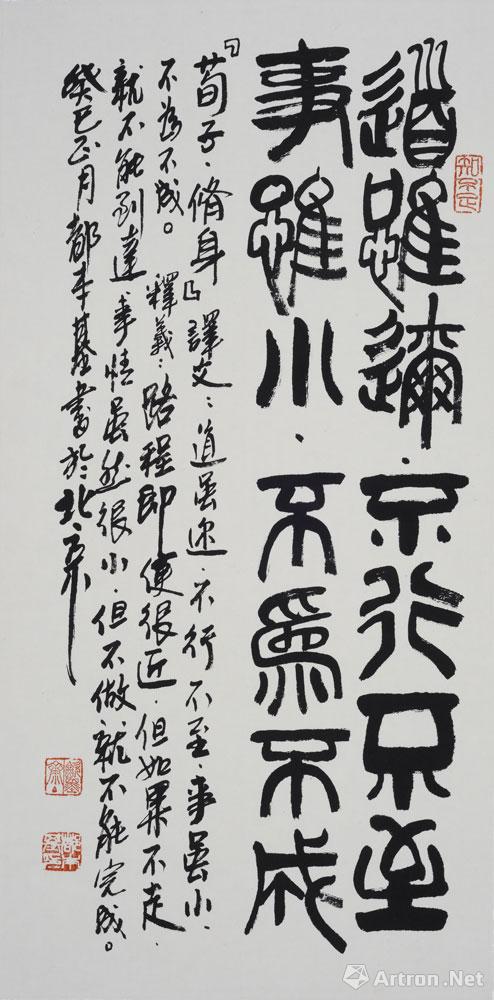 道雖邇·不行不至
事雖小·不爲不成
『荀子·脩身』譯文：道虽迩·不行不至·事虽小·
不為不成。釋義：路程即使很近·但如果不走·
就不能到達事情虽然很小·但不做就不能完成。
癸巳正月都本基書於北京
Artron.Net